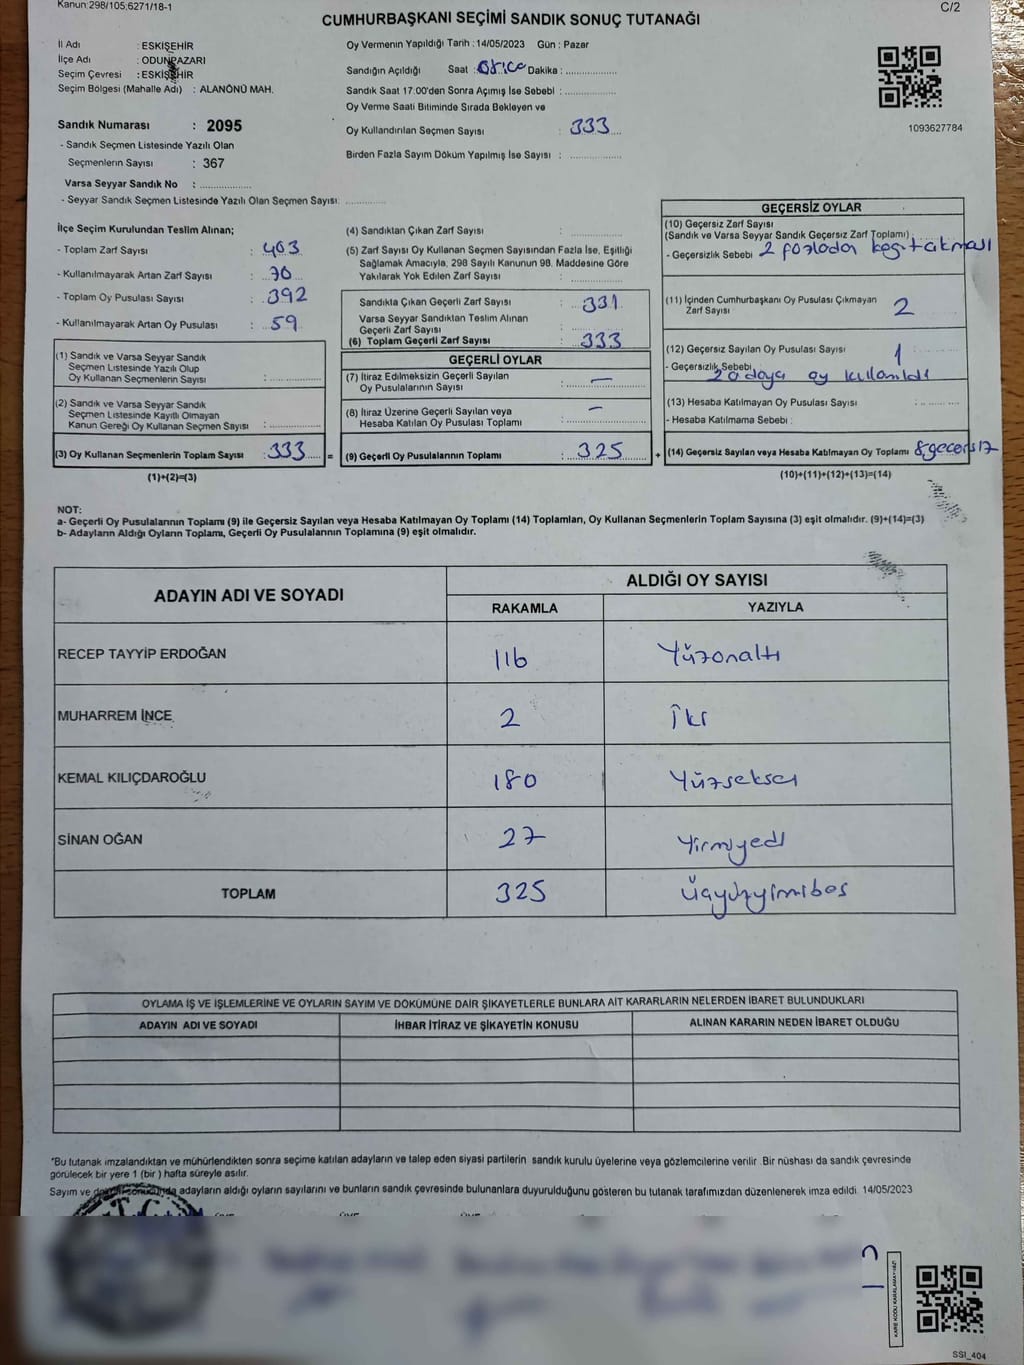 Kanun:298/105;6271/18-1
C/2
CUMHURBAŞKANI SEÇİMİ SANDIK SONUÇ TUTANAĞI
İl Adı : ESKİŞEHİR
İlçe Adı : ODUNPAZARI
Seçim Çevresi : ESKİŞEHİR
Seçim Bölgesi (Mahalle Adı) : ALANÖNÜ MAH.
Sandık Numarası : 2095
- Sandık Seçmen Listesinde Yazılı Olan
Seçmenlerin Sayısı : 367
Varsa Seyyar Sandık No : ................
- Seyyar Sandık Seçmen Listesinde Yazılı Olan Seçmen Sayısı: ............
Oy Vermenin Yapıldığı Tarih : 14/05/2023 Gün : Pazar
Sandığın Açıldığı Saat : Dakika : ................
Sandık Saat 17:00'den Sonra Açımış İse Sebebi : ................
Oy Verme Saati Bitiminde Sırada Bekleyen ve
Oy Kullandırılan Seçmen Sayısı : 333
Birden Fazla Sayım Döküm Yapılmış İse Sayısı : ................
1093627784
İlçe Seçim Kurulundan Teslim Alınan;
- Toplam Zarf Sayısı : 403
- Kullanılmayarak Artan Zarf Sayısı : 70
- Toplam Oy Pusulası Sayısı : 392
- Kullanılmayarak Artan Oy Pusulası : 59
(1) Sandık ve Varsa Seyyar Sandık
Seçmen Listesinde Yazılı Olup
Oy Kullanan Seçmenlerin Sayısı : ................
(2) Sandık ve Varsa Seyyar Sandık
Seçmen Listesinde Kayıtlı Olmayan
Kanun Gereği Oy Kullanan Seçmen Sayısı : ................
(3) Oy Kullanan Seçmenlerin Toplam Sayısı : 333 =
(1)+(2)=(3)
(4) Sandıktan Çıkan Zarf Sayısı : ................
(5) Zarf Sayısı Oy Kullanan Seçmen Sayısından Fazla İse, Eşitliği
Sağlamak Amacıyla, 298 Sayılı Kanunun 98. Maddesine Göre
Yakılarak Yok Edilen Zarf Sayısı : ................
Sandıkta Çıkan Geçerli Zarf Sayısı : 331
Varsa Seyyar Sandıktan Teslim Alınan
Geçerli Zarf Sayısı : ................
(6) Toplam Geçerli Zarf Sayısı : 333
GEÇERLİ OYLAR
(7) İtiraz Edilmeksizin Geçerli Sayılan
Oy Pusulalarının Sayısı : —
(8) İtiraz Üzerine Geçerli Sayılan veya
Hesaba Katılan Oy Pusulası Toplamı : —
(9) Geçerli Oy Pusulalarının Toplamı : 325 +
GEÇERSİZ OYLAR
(10) Geçersiz Zarf Sayısı
(Sandık ve Varsa Seyyar Sandık Geçersiz Zarf Toplamı) :
- Geçersizlik Sebebi 2 fazladan
(11) İçinden Cumhurbaşkanı Oy Pusulası Çıkmayan
Zarf Sayısı : 2
(12) Geçersiz Sayılan Oy Pusulası Sayısı : 1
- Geçersizlik Sebebi 2 adaya oy kullanıldı
(13) Hesaba Katılmayan Oy Pusulası Sayısı : ................
- Hesaba Katılmama Sebebi :
(14) Geçersiz Sayılan veya Hesaba Katılmayan Oy Toplamı 8 geçersiz
(10)+(11)+(12)+(13)=(14)
NOT:
a- Geçerli Oy Pusulalarının Toplamı (9) ile Geçersiz Sayılan veya Hesaba Katılmayan Oy Toplamı (14) Toplamları, Oy Kullanan Seçmenlerin Toplam Sayısına (3) eşit olmalıdır. (9)+(14)=(3)
b- Adayların Aldığı Oyların Toplamı, Geçerli Oy Pusulalarının Toplamına (9) eşit olmalıdır.
ADAYIN ADI VE SOYADI
ALDIĞI OY SAYISI
RAKAMLA YAZIYLA
RECEP TAYYİP ERDOĞAN 116 Yüzonaltı
MUHARREM İNCE 2 İki
KEMAL KILIÇDAROĞLU 180 Yüzseksen
SİNAN OĞAN 27 Yirmiyedi
TOPLAM 325 Üçyüzyirmibeş
OYLAMA İŞ VE İŞLEMLERİNE VE OYLARIN SAYIM VE DÖKÜMÜNE DAİR ŞİKAYETLERLE BUNLARA AİT KARARLARIN NELERDEN İBARET BULUNDUKLARI
ADAYIN ADI VE SOYADI İHBAR İTİRAZ VE ŞİKAYETİN KONUSU ALINAN KARARIN NEDEN İBARET OLDUĞU
*Bu tutanak imzalandıktan ve mühürlendikten sonra seçime katılan adayların ve talep eden siyasi partilerin sandık kurulu üyelerine veya gözlemcilerine verilir. Bir nüshası da sandık çevresinde
görülecek bir yere 1 (bir) hafta süreyle asılır.
Sayım ve döküm sonucunda adayların aldığı oyların sayılarını ve bunların sandık çevresinde bulunanlara duyurulduğunu gösteren bu tutanak tarafımızdan düzenlenerek imza edildi. 14/05/2023
KARE KODU KARALAMAYINIZ!
SSI_404